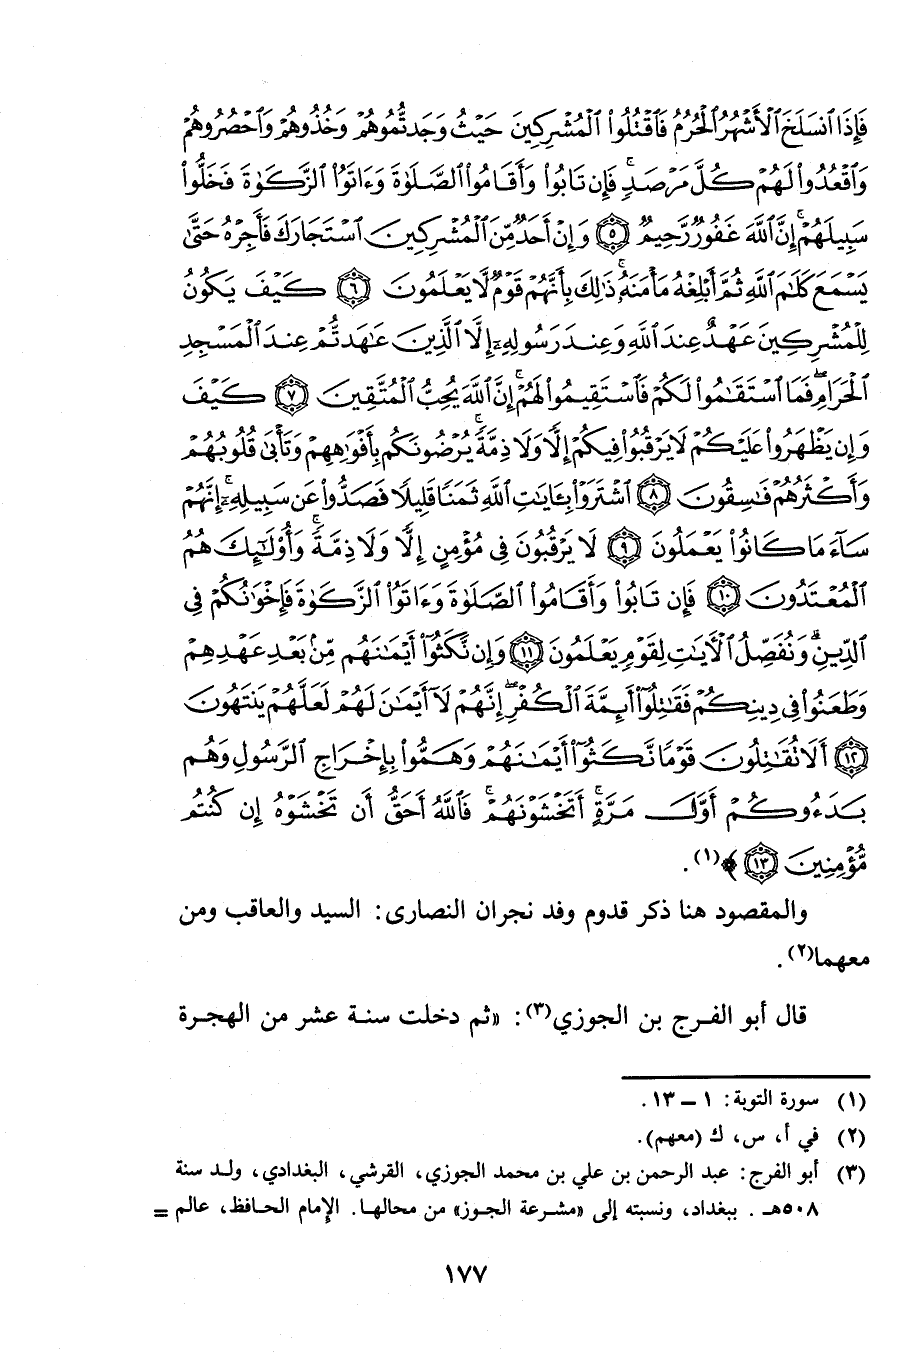 فَإِذَا ٱنسَلَخَ ٱلْأَشْهُرُ ٱلْحُرُمُ فَٱقْتُلُوا۟ ٱلْمُشْرِكِينَ حَيْثُ وَجَدتُّمُوهُمْ وَخُذُوهُمْ وَٱحْصُرُوهُمْ
وَٱقْعُدُوا۟ لَهُمْ كُلَّ مَرْصَدٍ ۚ فَإِن تَابُوا۟ وَأَقَامُوا۟ ٱلصَّلَوٰةَ وَءَاتَوُا۟ ٱلزَّكَوٰةَ فَخَلُّوا۟
سَبِيلَهُمْ ۚ إِنَّ ٱللَّهَ غَفُورٌ رَّحِيمٌ ﴿٥﴾ وَإِنْ أَحَدٌ مِّنَ ٱلْمُشْرِكِينَ ٱسْتَجَارَكَ فَأَجِرْهُ حَتَّىٰ
يَسْمَعَ كَلَٰمَ ٱللَّهِ ثُمَّ أَبْلِغْهُ مَأْمَنَهُۥ ۚ ذَٰلِكَ بِأَنَّهُمْ قَوْمٌ لَّا يَعْلَمُونَ ﴿٦﴾ كَيْفَ يَكُونُ
لِلْمُشْرِكِينَ عَهْدٌ عِندَ ٱللَّهِ وَعِندَ رَسُولِهِۦٓ إِلَّا ٱلَّذِينَ عَٰهَدتُّمْ عِندَ ٱلْمَسْجِدِ
ٱلْحَرَامِ ۖ فَمَا ٱسْتَقَٰمُوا۟ لَكُمْ فَٱسْتَقِيمُوا۟ لَهُمْ ۚ إِنَّ ٱللَّهَ يُحِبُّ ٱلْمُتَّقِينَ ﴿٧﴾ كَيْفَ
وَإِن يَظْهَرُوا۟ عَلَيْكُمْ لَا يَرْقُبُوا۟ فِيكُمْ إِلًّا وَلَا ذِمَّةً ۚ يُرْضُونَكُم بِأَفْوَٰهِهِمْ وَتَأْبَىٰ قُلُوبُهُمْ
وَأَكْثَرُهُمْ فَٰسِقُونَ ﴿٨﴾ ٱشْتَرَوْا۟ بِـَٔايَٰتِ ٱللَّهِ ثَمَنًا قَلِيلًا فَصَدُّوا۟ عَن سَبِيلِهِۦٓ ۚ إِنَّهُمْ
سَآءَ مَا كَانُوا۟ يَعْمَلُونَ ﴿٩﴾ لَا يَرْقُبُونَ فِى مُؤْمِنٍ إِلًّا وَلَا ذِمَّةً ۚ وَأُو۟لَٰٓئِكَ هُمُ
ٱلْمُعْتَدُونَ ﴿١٠﴾ فَإِن تَابُوا۟ وَأَقَامُوا۟ ٱلصَّلَوٰةَ وَءَاتَوُا۟ ٱلزَّكَوٰةَ فَإِخْوَٰنُكُمْ فِى
ٱلدِّينِ ۗ وَنُفَصِّلُ ٱلْأَيَٰتِ لِقَوْمٍ يَعْلَمُونَ ﴿١١﴾ وَإِن نَّكَثُوٓا۟ أَيْمَٰنَهُم مِّنۢ بَعْدِ عَهْدِهِمْ
وَطَعَنُوا۟ فِى دِينِكُمْ فَقَٰتِلُوٓا۟ أَئِمَّةَ ٱلْكُفْرِ ۙ إِنَّهُمْ لَآ أَيْمَٰنَ لَهُمْ لَعَلَّهُمْ يَنتَهُونَ
﴿١٢﴾ أَلَا تُقَٰتِلُونَ قَوْمًا نَّكَثُوٓا۟ أَيْمَٰنَهُمْ وَهَمُّوا۟ بِإِخْرَاجِ ٱلرَّسُولِ وَهُم
بَدَءُوكُمْ أَوَّلَ مَرَّةٍ ۚ أَتَخْشَوْنَهُمْ ۚ فَٱللَّهُ أَحَقُّ أَن تَخْشَوْهُ إِن كُنتُم
مُّؤْمِنِينَ ﴿١٣﴾﴾(١).
والمقصود هنا ذكر قدوم وفد نجران النصارى: السيد والعاقب ومن
معهما(٢).
قال أبو الفرج بن الجوزي(٣): «ثم دخلت سنة عشر من الهجرة
(١) سورة التوبة: ١ ــ ١٣.
(٢) في أ، س، ك (معهم).
(٣) أبو الفرج: عبد الرحمن بن علي بن محمد الجوزي، القرشي، البغدادي، ولد سنة
٥٠٨هـ. ببغداد، ونسبته إلى «مشرعة الجوز» من محالها. الإمام الحافظ، عالم =
١٧٧